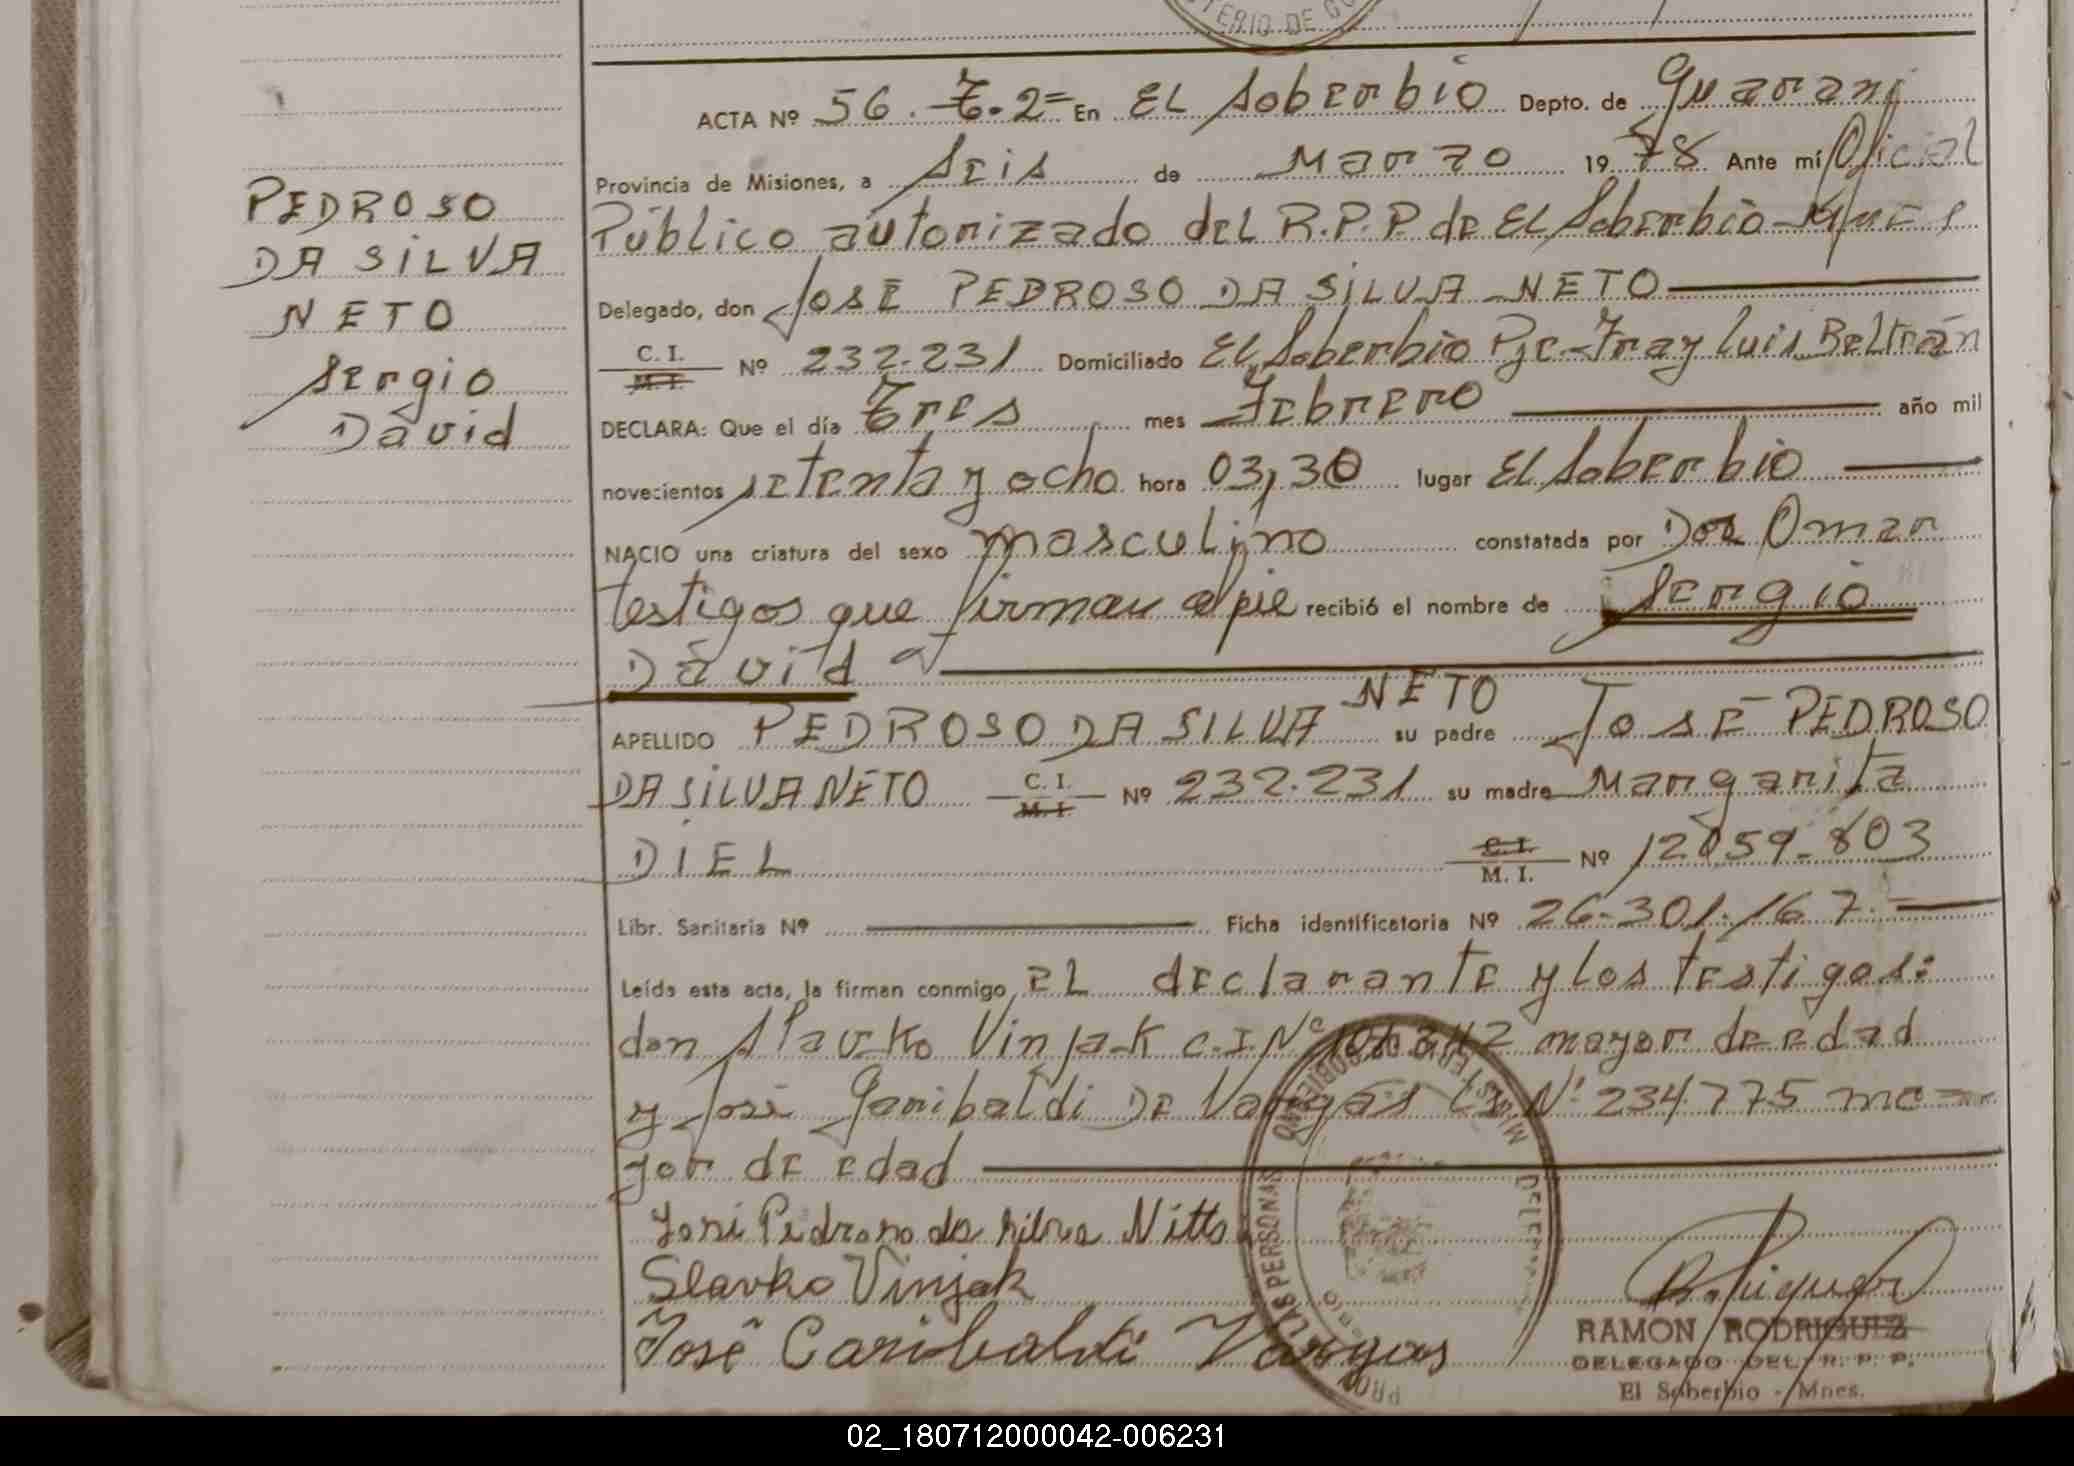 TERIO DE GO
ACTA Nº 56. T. 2= En EL Soberbio Depto. de Guarani
Provincia de Misiones, a Seis de Marzo 1978 Ante mí Oficial
Público autorizado del R.P.P. de EL Soberbio-Mnes
Delegado, don JOSE PEDROSO DA SILVA NETO
C. I. M. I. Nº 232.231 Domiciliado EL Soberbio Pje-Fray Luis Beltrán
DECLARA: Que el día Tres mes Febrero año mil
novecientos setenta y ocho hora 03,30 lugar EL Soberbio
NACIO una criatura del sexo masculino constatada por Dos Omar
testigos que firman al pie recibió el nombre de Sergio
David
APELLIDO PEDROSO DA SILVA NETO su padre JOSE PEDROSO
DA SILVA NETO C. I. M. I. Nº 232.231 su madre Margarita
DIEL C. I. M. I. Nº 12059-803
Libr. Sanitaria Nº Ficha identificatoria Nº 26.301.167.
Leída esta acta, la firman conmigo, EL declarante y los testigos:
don Slavko Vinjak C.I Nº 101342 mayor de edad
y José Garibaldi De Vargas C.I. Nº 234775 ma=
yor de edad
José Pedroso da Silva Nitto
Slavko Vinjak
José Garibaldi Vargas
RAMON RODRIGUEZ
DELEGADO DEL R. P. P.
El Soberbio - Mnes.
PEDROSO
DA SILVA
NETO
Sergio
David
MINISTERIO DE GOBIERNO
LAS PERSONAS
02_180712000042-006231